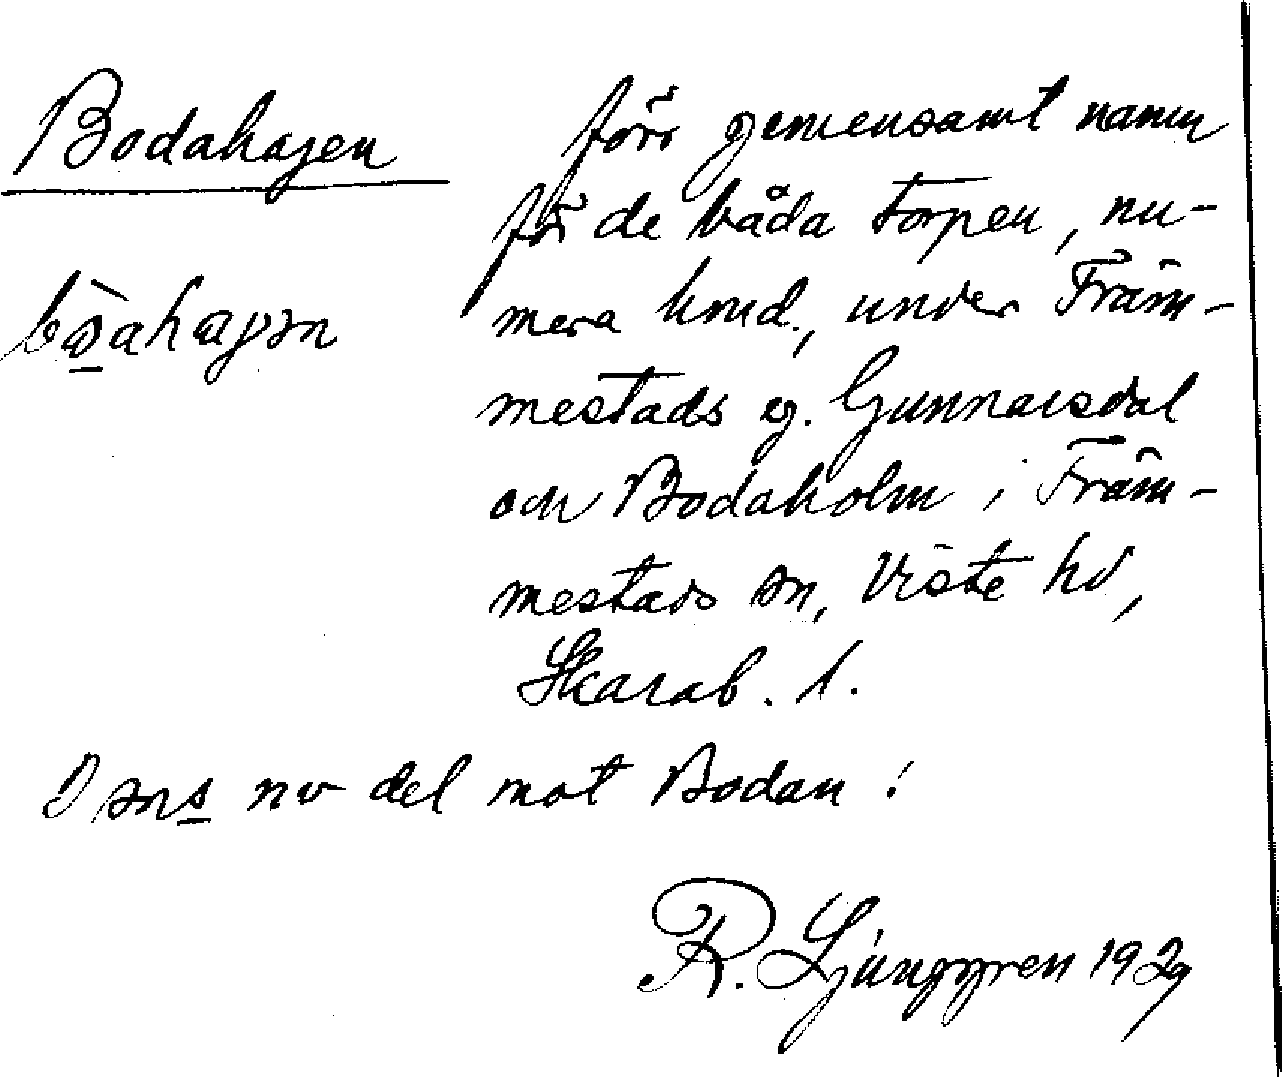 Bodahagen
förr gemensamt namn
för de båda torpen, nu-
mera hmd., under Främ-
mestads eg. Gunnarsdal
och Bodaholm i Främ-
mestads sn, Viste hd,
Skarab. l.
I sns nv del mot Bodan!
R. Ljunggren 1929